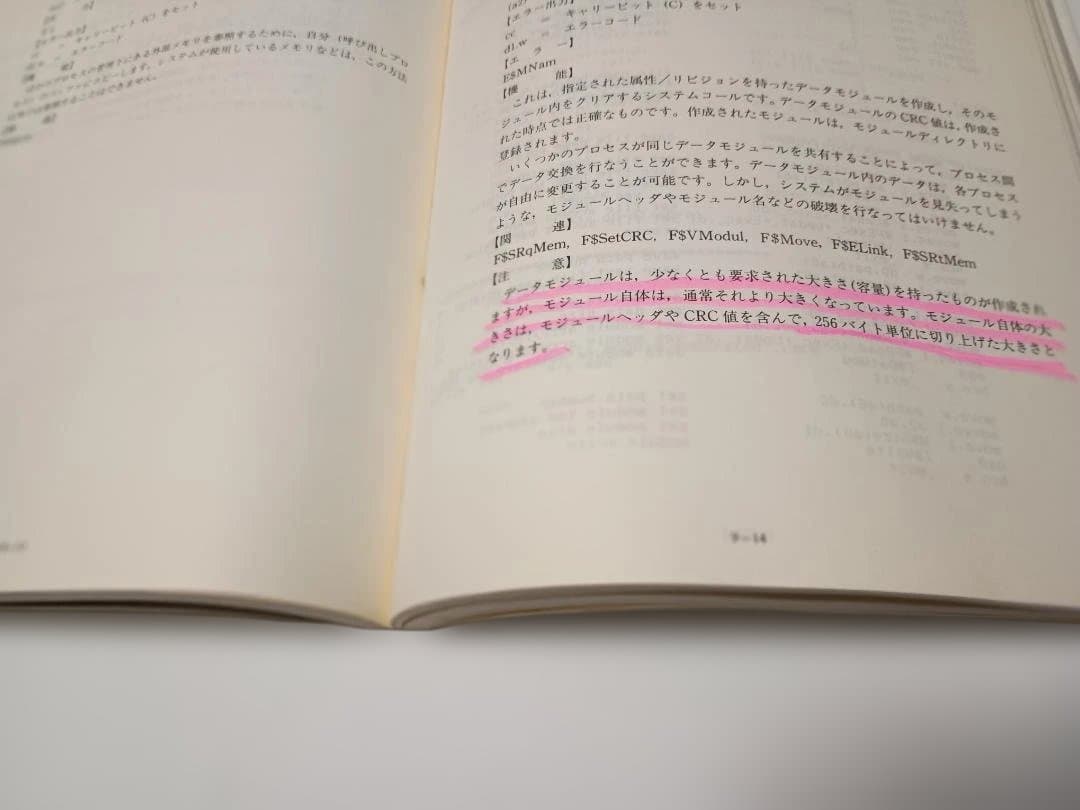 キャリービット (C) をセット
エラーコード
自分（呼び出しプロ
システムが使用しているメモリなどは，この方法
(a2)
【エラー出力】
cc = キャリービット (C) をセット
d1.w = エラーコード
【エ ラ ー】
E$MNam
【機 能】
これは，指定された属性／リビジョンを持ったデータモジュールを作成し，そのモ
ジュール内をクリアするシステムコールです。データモジュールのCRC値は，作成さ
れた時点では正確なものです。作成されたモジュールは，モジュールディレクトリに
登録されます。
いくつかのプロセスが同じデータモジュールを共有することによって，プロセス間
でデータ交換を行なうことができます。データモジュール内のデータは，各プロセス
が自由に変更することが可能です。しかし，システムがモジュールを見失ってしまう
ような，モジュールヘッダやモジュール名などの破壊を行なってはいけません。
【関 連】
F$SRqMem, F$SetCRC, F$VModul, F$Move, F$ELink, F$SRtMem
【注 意】
データモジュールは，少なくとも要求された大きさ(容量)を持ったものが作成され
ますが，モジュール自体は，通常それより大きくなっています。モジュール自体の大
きさは，モジュールヘッダやCRC値を含んで，256バイト単位に切り上げた大きさと
なります。
9－14